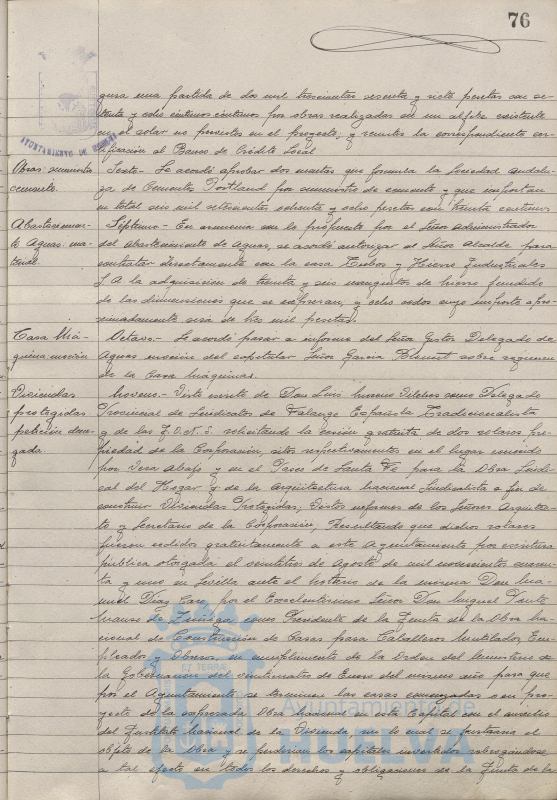 76
gura una partida de dos mil trescientas sesenta y siete pesetas con se-
tenta y ocho céntimos por obras realizadas en un aljibe existente
en el solar no previstas en el proyecto, y remitir la correspondiente cer-
tificación al Banco de Crédito Local
AYUNTAMIENTO DE HUELVA
Obras: suministro
cemento.
Sexto.- Se acordó aprobar dos cuentas que formula la Sociedad Andalu-
za de Cemento Portland por suministro de cemento y que importan
en total seis mil setecientas ochenta y ocho pesetas con treinta céntimos
Abastecimien-
to Aguas: ma-
terial.
Séptimo.- En armonía con lo propuesto por el Señor Administrador
del Abastecimiento de Aguas, se acordó autorizar al Señor Alcalde para
contratar directamente con la casa Tubos y Hierros Industriales
S.A. la adquisición de treinta y seis manguitos de hierro fundido
de las dimensiones que se expresan, y ocho codos cuyo importe apro-
ximadamente será de tres mil pesetas.
Casa Má-
quinas:
Octavo.- Se acordó pasar a informe del Señor Gestor Delegado de
Aguas moción del capitular Señor García sobre
de la Casa Máquinas.
Viviendas
protegidas
petición dene-
gada.
Noveno.- Visto escrito de Don Luis como Delegado
Provincial de Sindicatos de Falange Española Tradicionalista
y de las J.O.N.S. solicitando la cesión gratuita de dos solares pro-
piedad de la Corporación, sitos respectivamente en el lugar conocido
por Vega Abajo y en el Paseo de Santa Fé para la Obra Sindi-
cal del Hogar y de la Arquitectura Nacional Sindicalista a fin de
construir Viviendas Protegidas; Vistos informes de los Señores Arquitec-
to y Secretario de la Corporación; Resultando que dichos solares
fueron cedidos gratuitamente a este Ayuntamiento por escritura
pública otorgada el veintitres de Agosto de mil novecientos cuaren-
ta y uno en Sevilla ante el Notario de la misma Don Ma-
nuel Díaz Caro por el Excelentísimo Señor Don Miguel
de Zuñiga como Presidente de la Junta de la Obra Na-
cional de Construcción de Casas para Caballeros Mutilados, Em-
pleados y Obreros, en cumplimiento de la Orden del Ministerio de
la Gobernación del veinticuatro de Enero del mismo año para que
por el Ayuntamiento se terminen las casas comenzadas con pro-
yecto de la expresada Obra Nacional en esta Capital con el auxilio
del Instituto Nacional de la Vivienda, sin lo cual se frustraría el
objeto de la Obra y se perderían los capitales invertidos, subrogándose
a tal efecto en todos los derechos y obligaciones de la Junta de la
ET TERRÆ
Ayuntamiento de
HUELVA